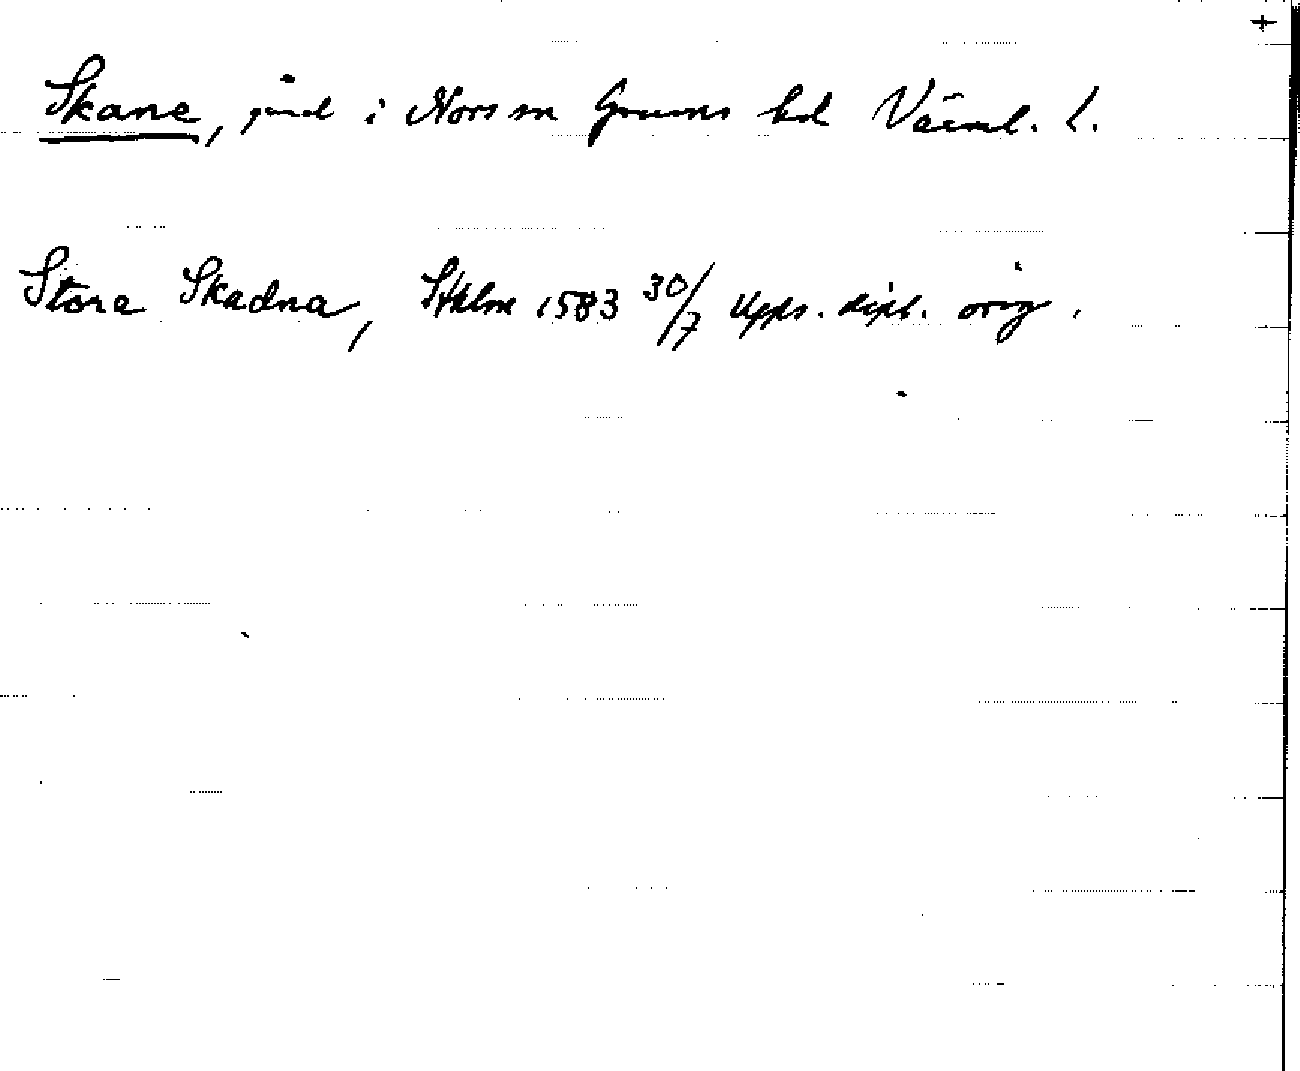 +
Skane, gård i Nors sn Grums hd Värml. l.
Stora Skadna, Sthlm 1583 30/7 Upps. dipl. orig.